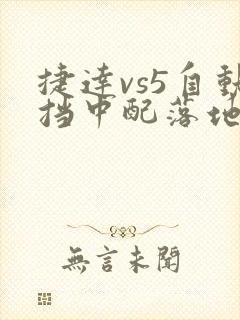 捷達vs5自動
挡中配落地
無言未聞